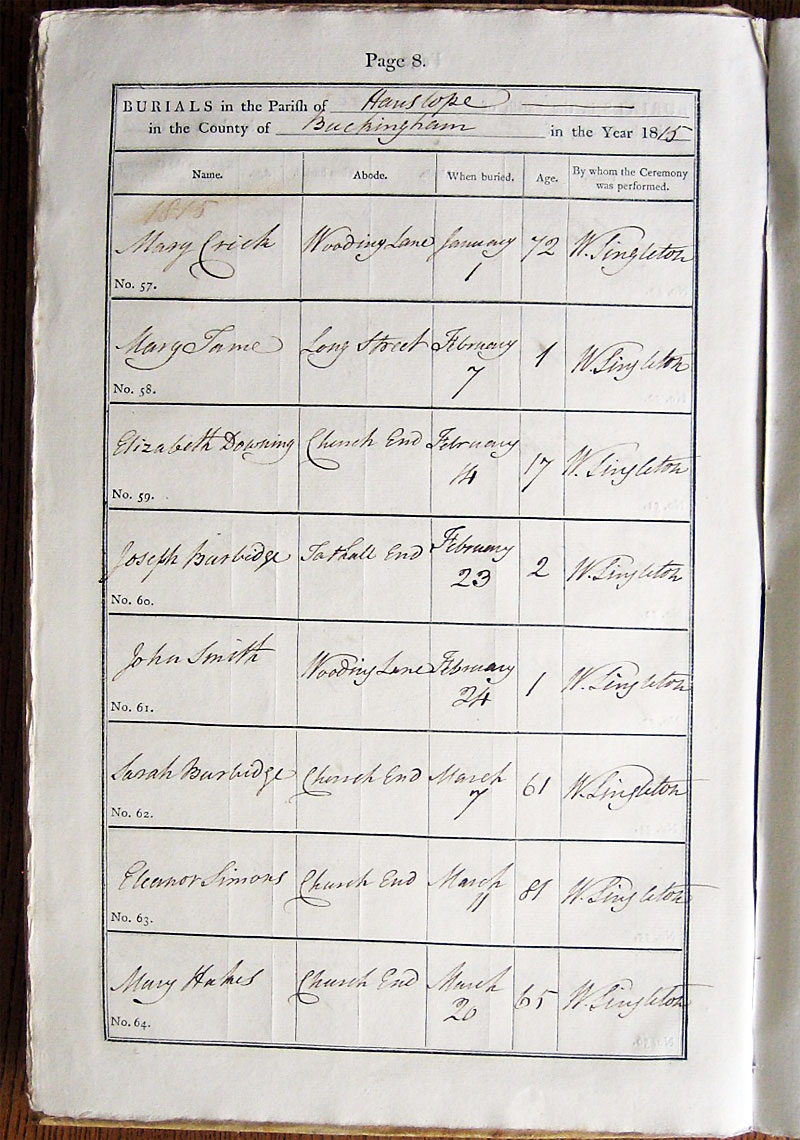 Page 8.
BURIALS in the Parish of Hanslope
in the County of Buckingham in the Year 1815
Name. Abode. When buried. Age. By whom the Ceremony was performed.
1815
Mary Crick Wooding Lane January 1 72 W. Singleton
No. 57.
Mary Tame Long Street February 7 1 W. Singleton
No. 58.
Elizabeth Downing Church End February 14 17 W. Singleton
No. 59.
Joseph Burbidge Tathall End February 23 2 W. Singleton
No. 60.
John Smith Wooding Lane February 24 1 W. Singleton
No. 61.
Sarah Burbidge Church End March 7 61 W. Singleton
No. 62.
Eleanor Simons Church End March 11 81 W. Singleton
No. 63.
Mary Church End March 20 65 W. Singleton
No. 64.